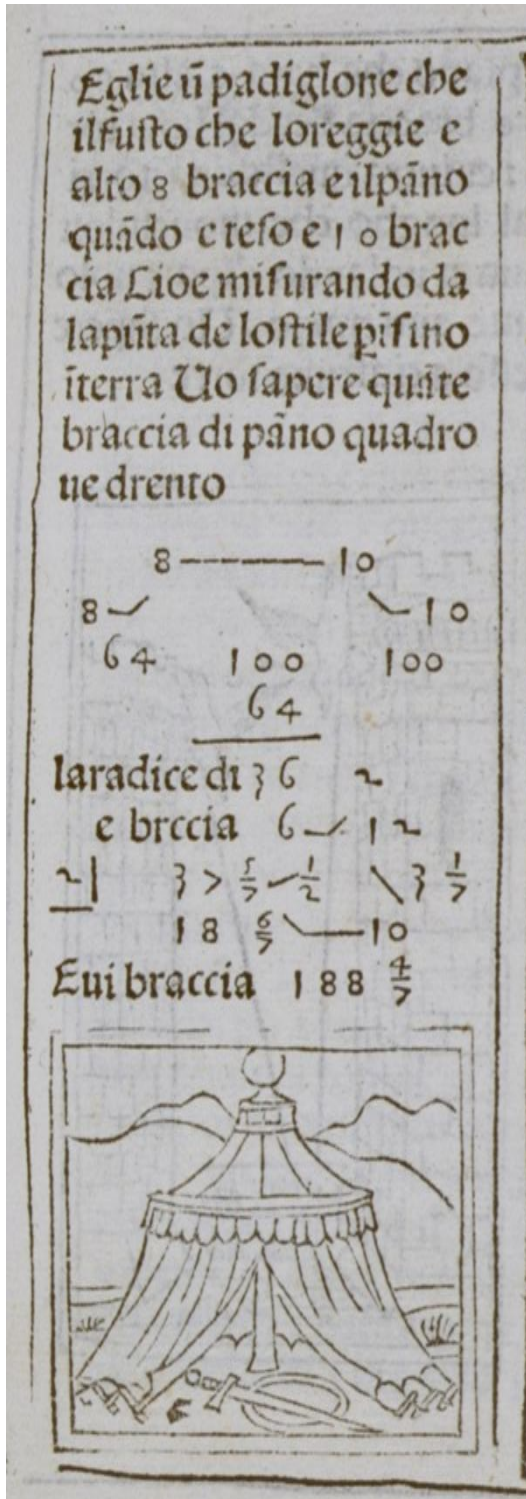 Eglie ũ padiglone che
ilfuſto che loreggie e
alto 8 braccia e ilpãno
quãdo e teſo e 10 brac
cia Cioe miſurando da
lapũta de loſtile ꝑiſino
ĩterra Uo ſapere quãte
braccia di pãno quadro
ue drento
8 10
8 10
64 100 100
64
laradice di 36 2
e brccia 6 12
2 37 5/7 1/2 3 1/7
18 6/7 10
Eui braccia 188 4/7